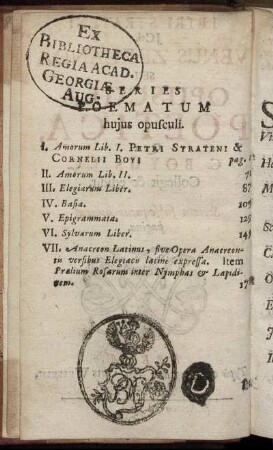 Ex
BIBLIOTHECA
REGIA ACAD.
GEORGIÆ
AUG.
SERIES
POEMATUM
hujus opusculi.
I. Amorum Lib. I. PETRI STRATENI &
CORNELII BOYI pag.
II. Amorum Lib. II. 71
III. Elegiarum Liber. 87
IV. Basia. 101
V. Epigrammata. 125
VI. Sylvarum Liber. 141
VII. Anacreon Latinus, sive Opera Anacreon-
tis versibus Elegiacis latine expressa. Item
Prælium Rosarum inter Nymphas & Lapidi-
cem. 17
D